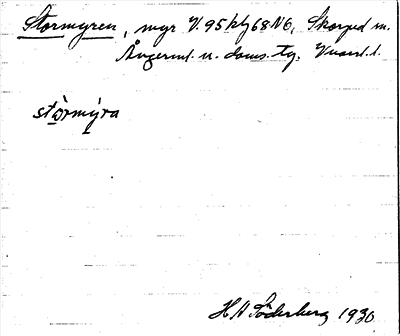 Stormyren, myr V.95 kbl 68 NO, Skorped sn.
Ångerml. n. doms. tg. Vnorrl. l.
stòrmýra
H A Söderberg 1930